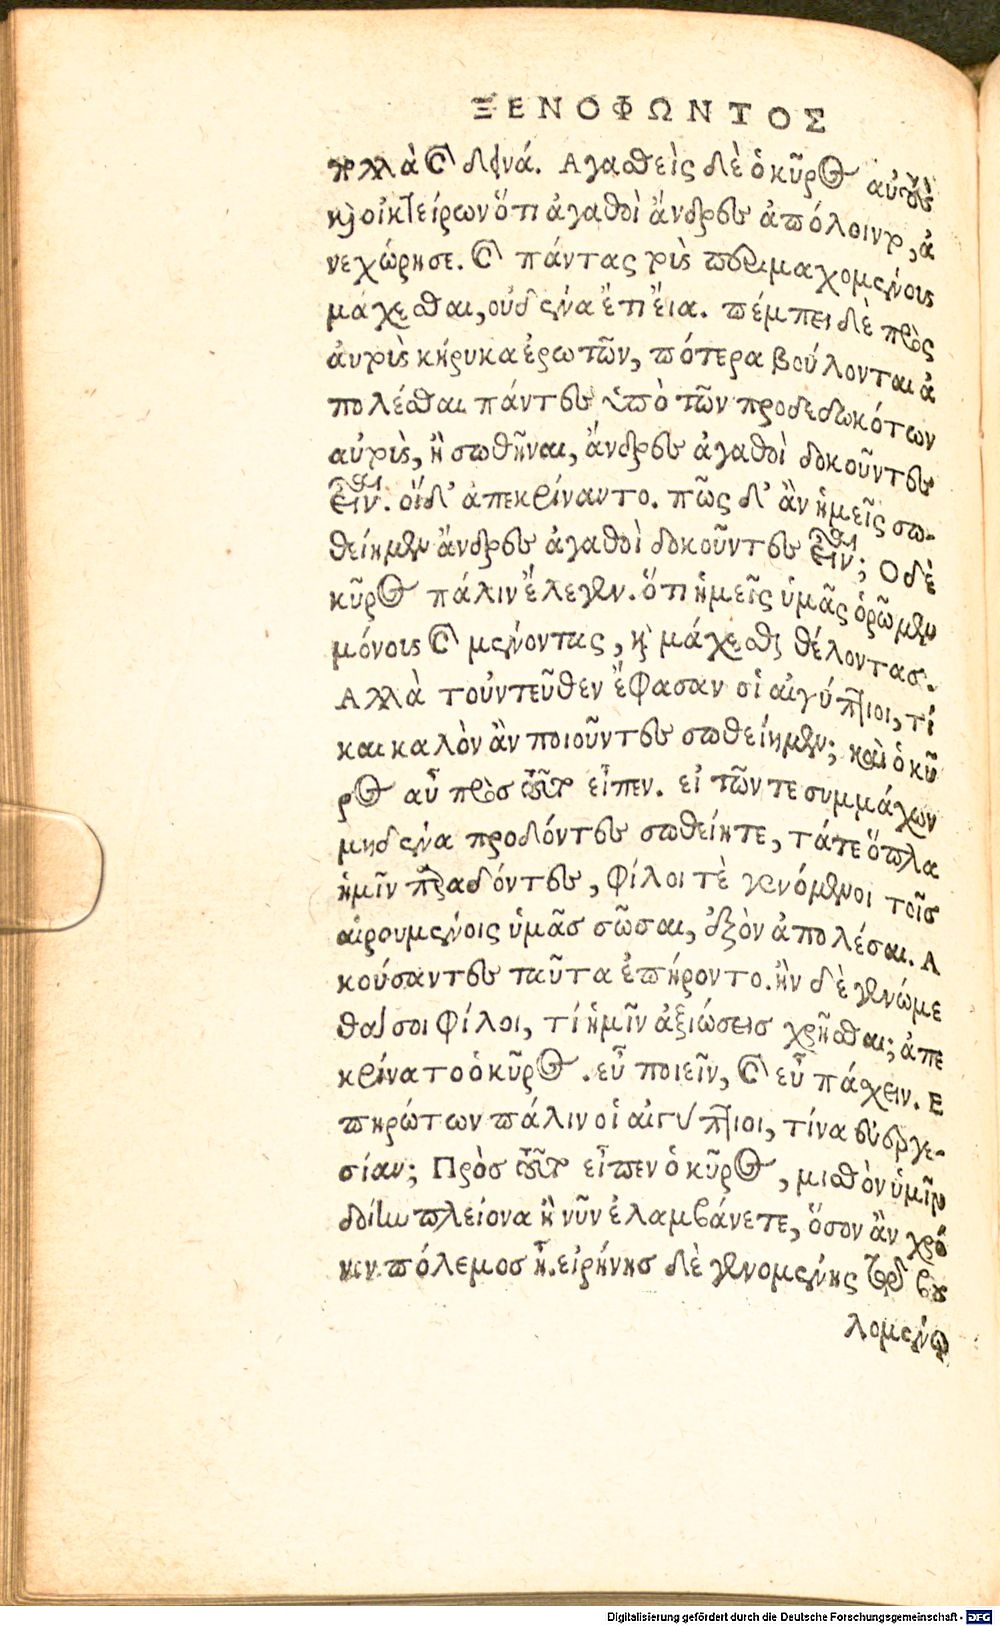 ΞΕΝΟΦΩΝΤΟΣ
πολλὰ καὶ δεινά. Ἀγασθεὶς δὲ ὁ κῦρος αὐτοὺς
καὶ οἰκτείρων ὅτι ἀγαθοὶ ἄνδρες ἀπόλοιντο, ἀ
νεχώρησε. καὶ πάντας τοὺς περιμαχομένους
μάχεσθαι, οὐδένα ἔτι εἴα. πέμπει δὲ πρὸς
ἀυτοὺς κήρυκα ἐρωτῶν, πότερα βούλονται ἀ
πολέσθαι πάντες ὑπὸ τῶν προδεδωκότων
αὐτοὺς, ἢ σωθῆναι, ἄνδρες ἀγαθοὶ δοκοῦντες
εἶναι. οἱ δ' ἀπεκρίναντο. πῶς δ' ἂν ἡμεῖς σω-
θείημεν ἄνδρες ἀγαθοὶ δοκοῦντες εἶναι; Ο δὲ
κῦρος πάλιν ἔλεγεν. ὅτι ἡμεῖς ὑμᾶς ὁρῶμεν
μόνους καὶ μένοντας, καὶ μάχεσθαι θέλοντας.
Ἀλλὰ τοὐντεῦθεν ἔφασαν οἱ αἰγύπτιοι, τί
και καλὸν ἂν ποιοῦντες σωθείημεν; καὶ ὁ κῦ
ρος αὖ πρὸς τοῦτο εἶπεν. εἰ τῶν τε συμμάχων
μηδένα προδόντες σωθείητε, τά τε ὅπλα
ἡμῖν παραδόντες, φίλοι τὲ γενόμενοι τοῖς
αἱρουμένοις ὑμᾶς σῶσαι, ἐξὸν ἀπολέσαι. Α
κούσαντες ταῦτα ἐπήροντο. ἢν δὲ γενώμε
θά σοι φίλοι, τί ἡμῖν ἀξιώσεις χρῆσθαι; ἀπε
κρίνατο ὁ κῦρος. εὖ ποιεῖν, καὶ εὖ πάσχειν. Ε
πηρώτων πάλιν οἱ αἰγύπτιοι, τίνα εὐεργε-
σίαν; Πρὸς τοῦτο εἶπεν ὁ κῦρος, μισθὸν ὑμῖν
δοίην πλείονα ἢ νῦν ἐλαμβάνετε, ὅσον ἂν χρό
νον πόλεμος ᾖ. εἰρήνης δὲ γενομένης τῷ βου
λομένῳ
Digitalisierung gefördert durch die Deutsche Forschungsgemeinschaft - DFG